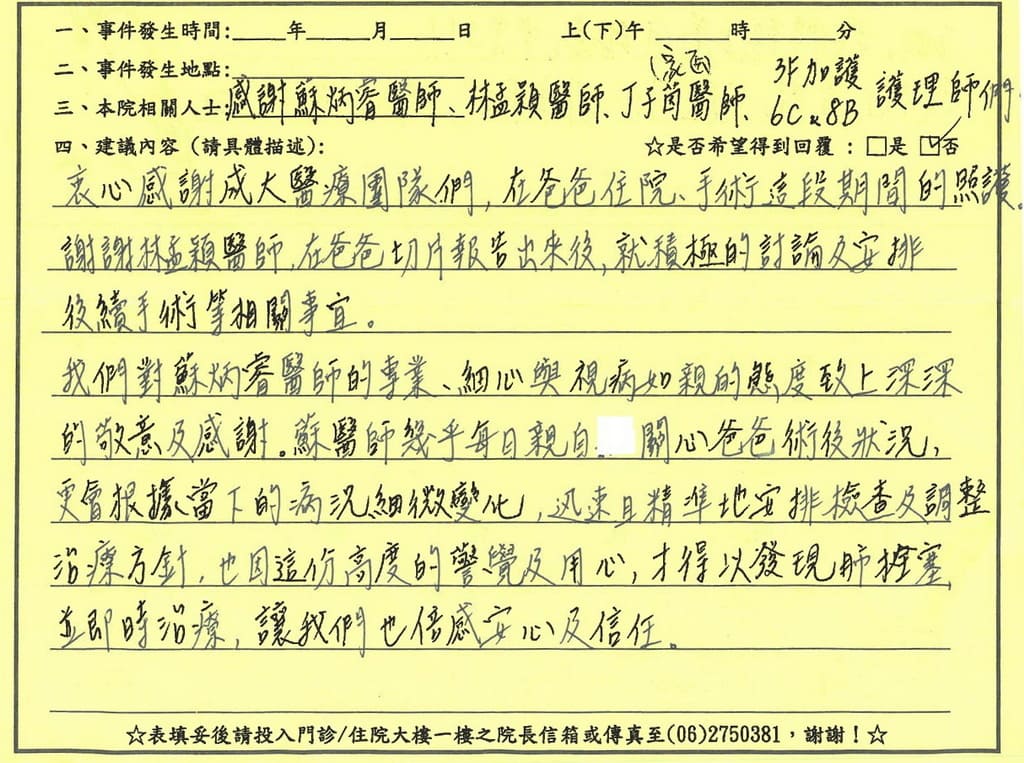 一、事件發生時間:_____年_____月_____日 上(下)午_____時_____分
二、事件發生地點:
(家函) 3F加護
三、本院相關人士:感謝蘇炳睿醫師、林孟穎醫師、丁子茵醫師、6C、8B 護理師們
四、建議內容(請具體描述): ☆是否希望得到回覆:□是 ☑否
衷心感謝成大醫療團隊們,在爸爸住院、手術這段期間的照護。
謝謝林孟穎醫師,在爸爸切片報告出來後,就積極的討論及安排
後續手術等相關事宜。
我們對蘇炳睿醫師的專業、細心與視病如親的態度致上深深
的敬意及感謝。蘇醫師幾乎每日親自 關心爸爸術後狀況,
更會根據當下的病況細微變化,迅速且精準地安排檢查及調整
治療方針,也因這份高度的警覺及用心,才得以發現肺栓塞,
並即時治療,讓我們也倍感安心及信任。
☆表填妥後請投入門診/住院大樓一樓之院長信箱或傳真至(06)2750381,謝謝!☆